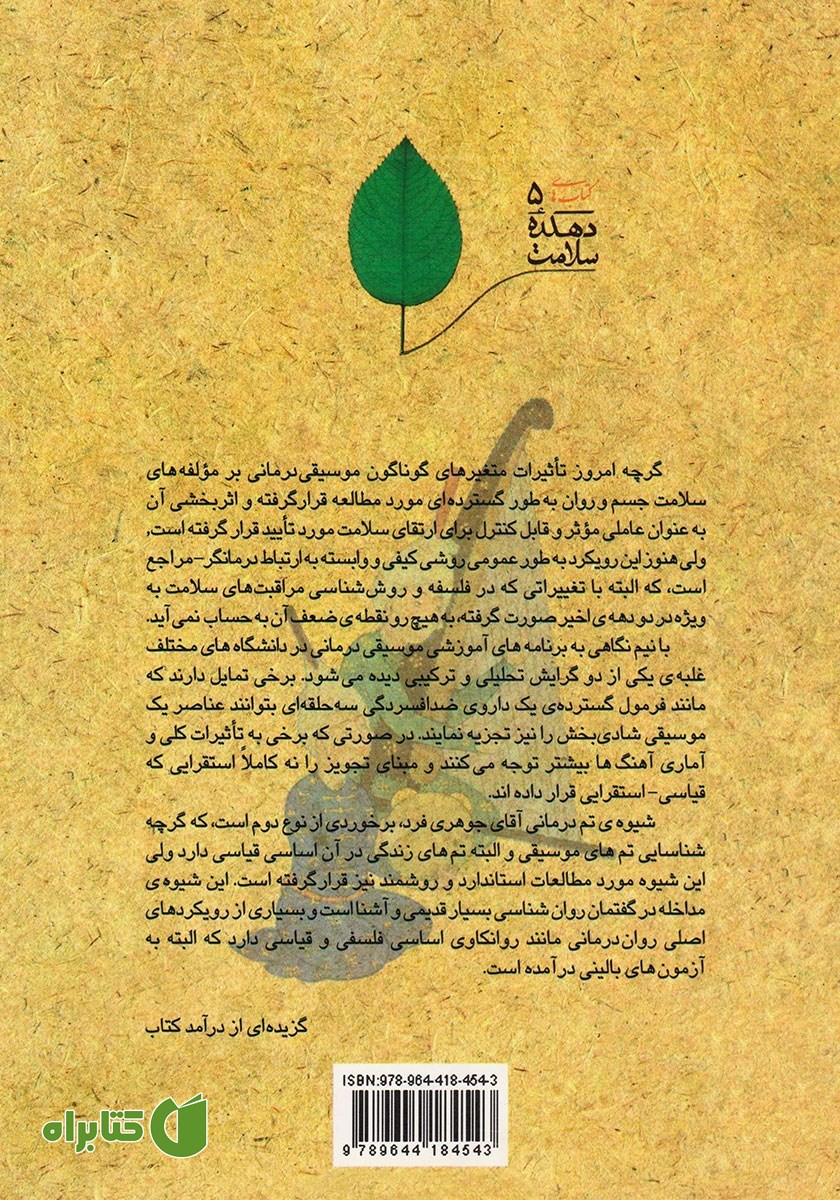 کتاب‌های ۵
دهکدهٔ
سلامت
گرچه امروز تأثیرات متغیرهای گوناگون موسیقی‌درمانی بر مؤلفه‌های
سلامت جسم و روان به‌طور گسترده‌ای مورد مطالعه قرارگرفته و اثربخشی آن
به عنوان عاملی مؤثر و قابل کنترل برای ارتقای سلامت مورد تأیید قرار گرفته است,
ولی هنوز این رویکرد به طور عمومی روشی کیفی و وابسته به ارتباط درمانگر–مراجع
است، که البته با تغییراتی که در فلسفه و روش‌شناسی مراقبت‌های سلامت به
ویژه در دو دهه‌ی اخیر صورت گرفته، به هیچ رو نقطه‌ی ضعف آن به حساب نمی‌آید.
با نیم نگاهی به برنامه های آموزشی موسیقی درمانی در دانشگاه های مختلف
غلبه‌ی یکی از دو گرایش تحلیلی و ترکیبی دیده می شود. برخی تمایل دارند که
مانند فرمول گسترده‌ی یک داروی ضدافسردگی سه‌حلقه‌ای بتوانند عناصر یک
موسیقی شادی‌بخش را نیز تجزیه نمایند. در صورتی که برخی به تأثیرات کلی و
آماری آهنگ ها بیشتر توجه می کنند و مبنای تجویز را نه کاملاً استقرایی که
قیاسی–استقرایی قرار داده اند.
شیوه ی تم درمانی آقای جوهری فرد، برخوردی از نوع دوم است، که گرچه
شناسایی تم های موسیقی و البته تم های زندگی در آن اساسی قیاسی دارد ولی
این شیوه مورد مطالعات استاندارد و روشمند نیز قرارگرفته است. این شیوه ی
مداخله در گفتمان روان شناسی بسیار قدیمی و آشنا است و بسیاری از رویکردهای
اصلی روان‌درمانی مانند روانکاوی اساسی فلسفی و قیاسی دارد که البته به
آزمون های بالینی درآمده است.
گزیده‌ای از درآمد کتاب
ISBN:978-964-418-454-3
9 789644 184543
کتابراه